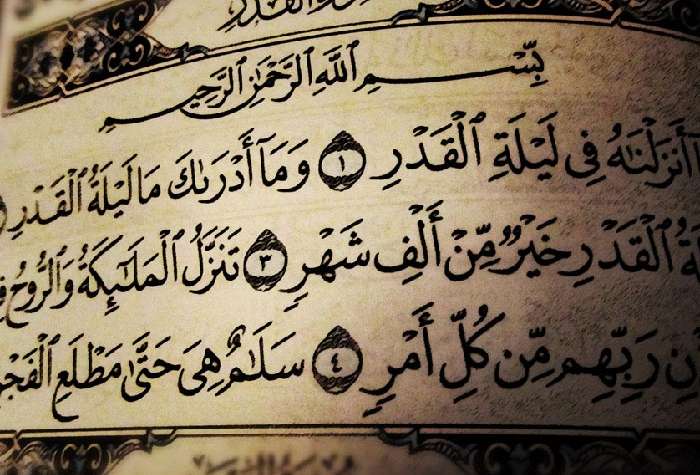 سُورَةُ الْقَدْرِ
بِسْمِ ٱللَّهِ ٱلرَّحْمَٰنِ ٱلرَّحِيمِ
أَنزَلْنَٰهُ فِى لَيْلَةِ ٱلْقَدْرِ ١ وَمَآ أَدْرَىٰكَ مَا لَيْلَةُ ٱلْقَدْرِ
ٱلْقَدْرِ خَيْرٌ مِّنْ أَلْفِ شَهْرٍ ٣ تَنَزَّلُ ٱلْمَلَٰٓئِكَةُ وَٱلرُّوحُ
رَبِّهِم مِّن كُلِّ أَمْرٍ ٤ سَلَٰمٌ هِىَ حَتَّىٰ مَطْلَعِ ٱلْفَجْرِ